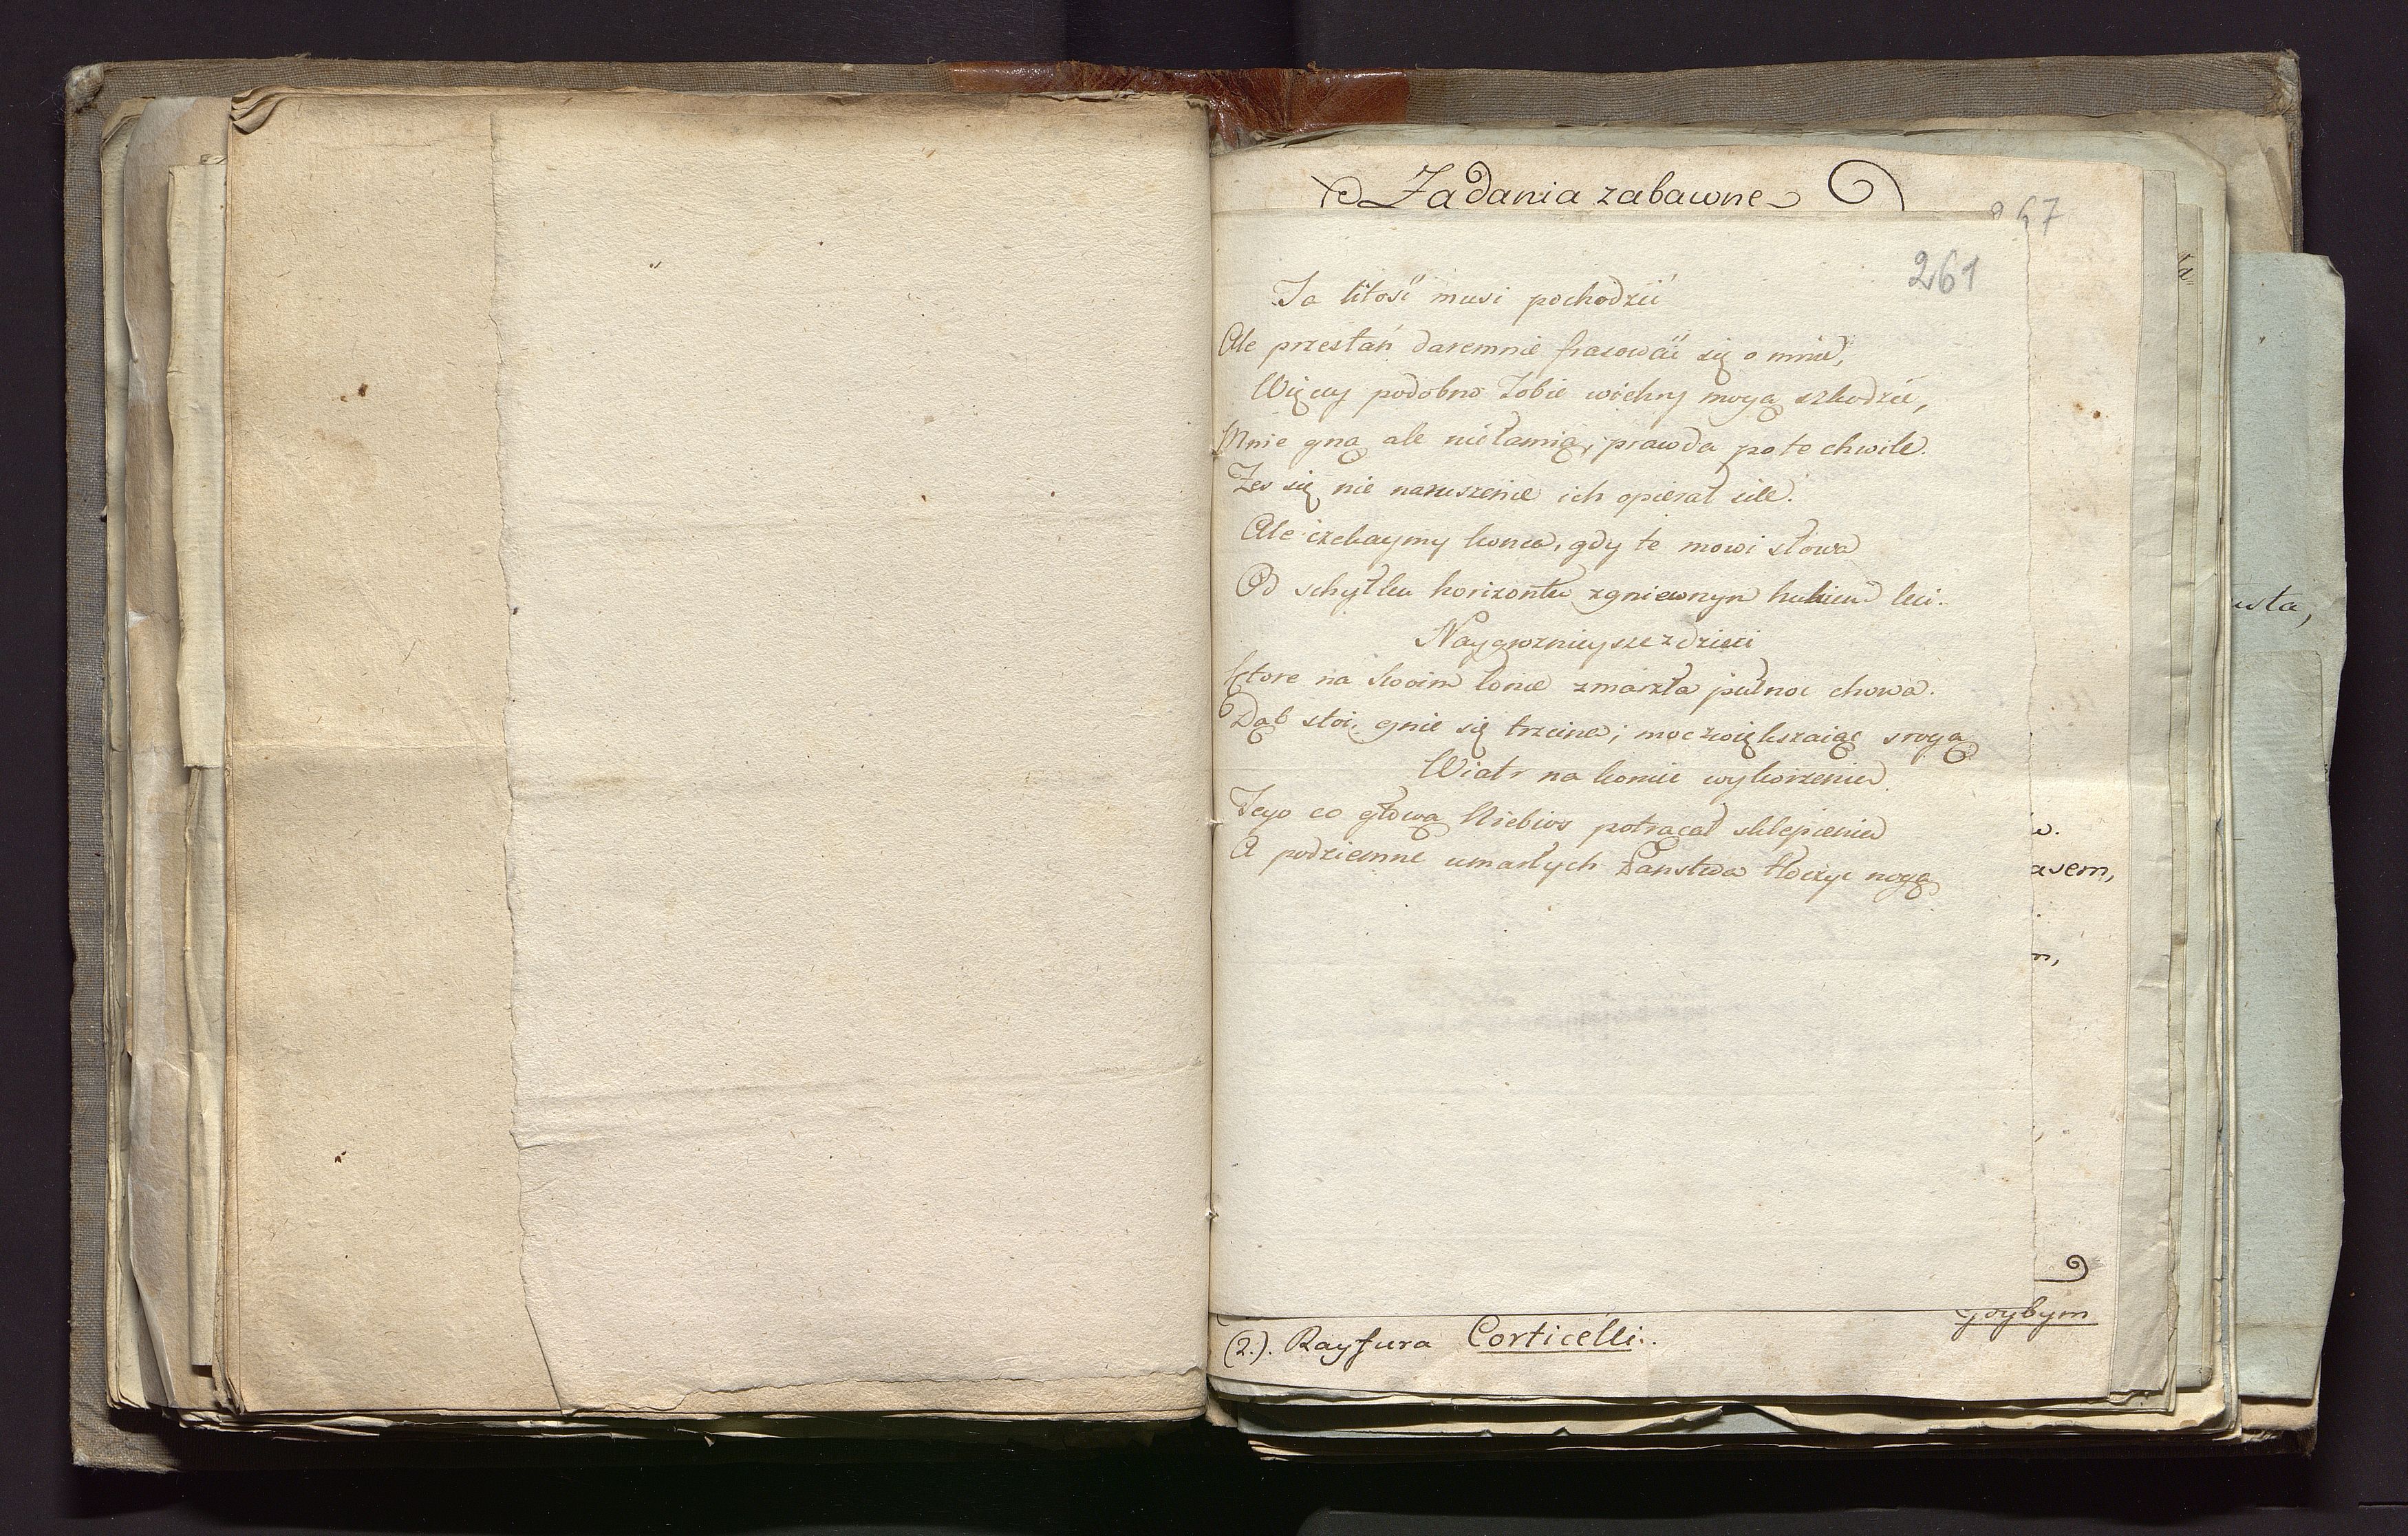 Zadania zabawne
267
261
Ta litość musi pochodzić
Ale przestań daremnie frasować się o mnie,
Więcey podobno Tobie wichry mogą szkodzić,
Mnie gną ale niełamią, prawda po te chwile.
Żeś się nie naruszenie ich opierał sile.
Ale czekaymy końca, gdy te mowi słowa
Od schyłku horizontu zgniewnym hukiem leci.
Naygroznieysze z dzieci
Ktore na swoim łonie zmarzła pułnoc chowa.
Dąb stoi, gnie się trzcina; moc zwiększaiąc srogą
Wiatr na koniec wykorzenia
Tego co głową Niebios potrącał sklepienia
A podziemne umarłych Państwa tłoczył nogą
usta,
w.
asem,
m,
gdybym
(2.). Rayfura Corticelli.